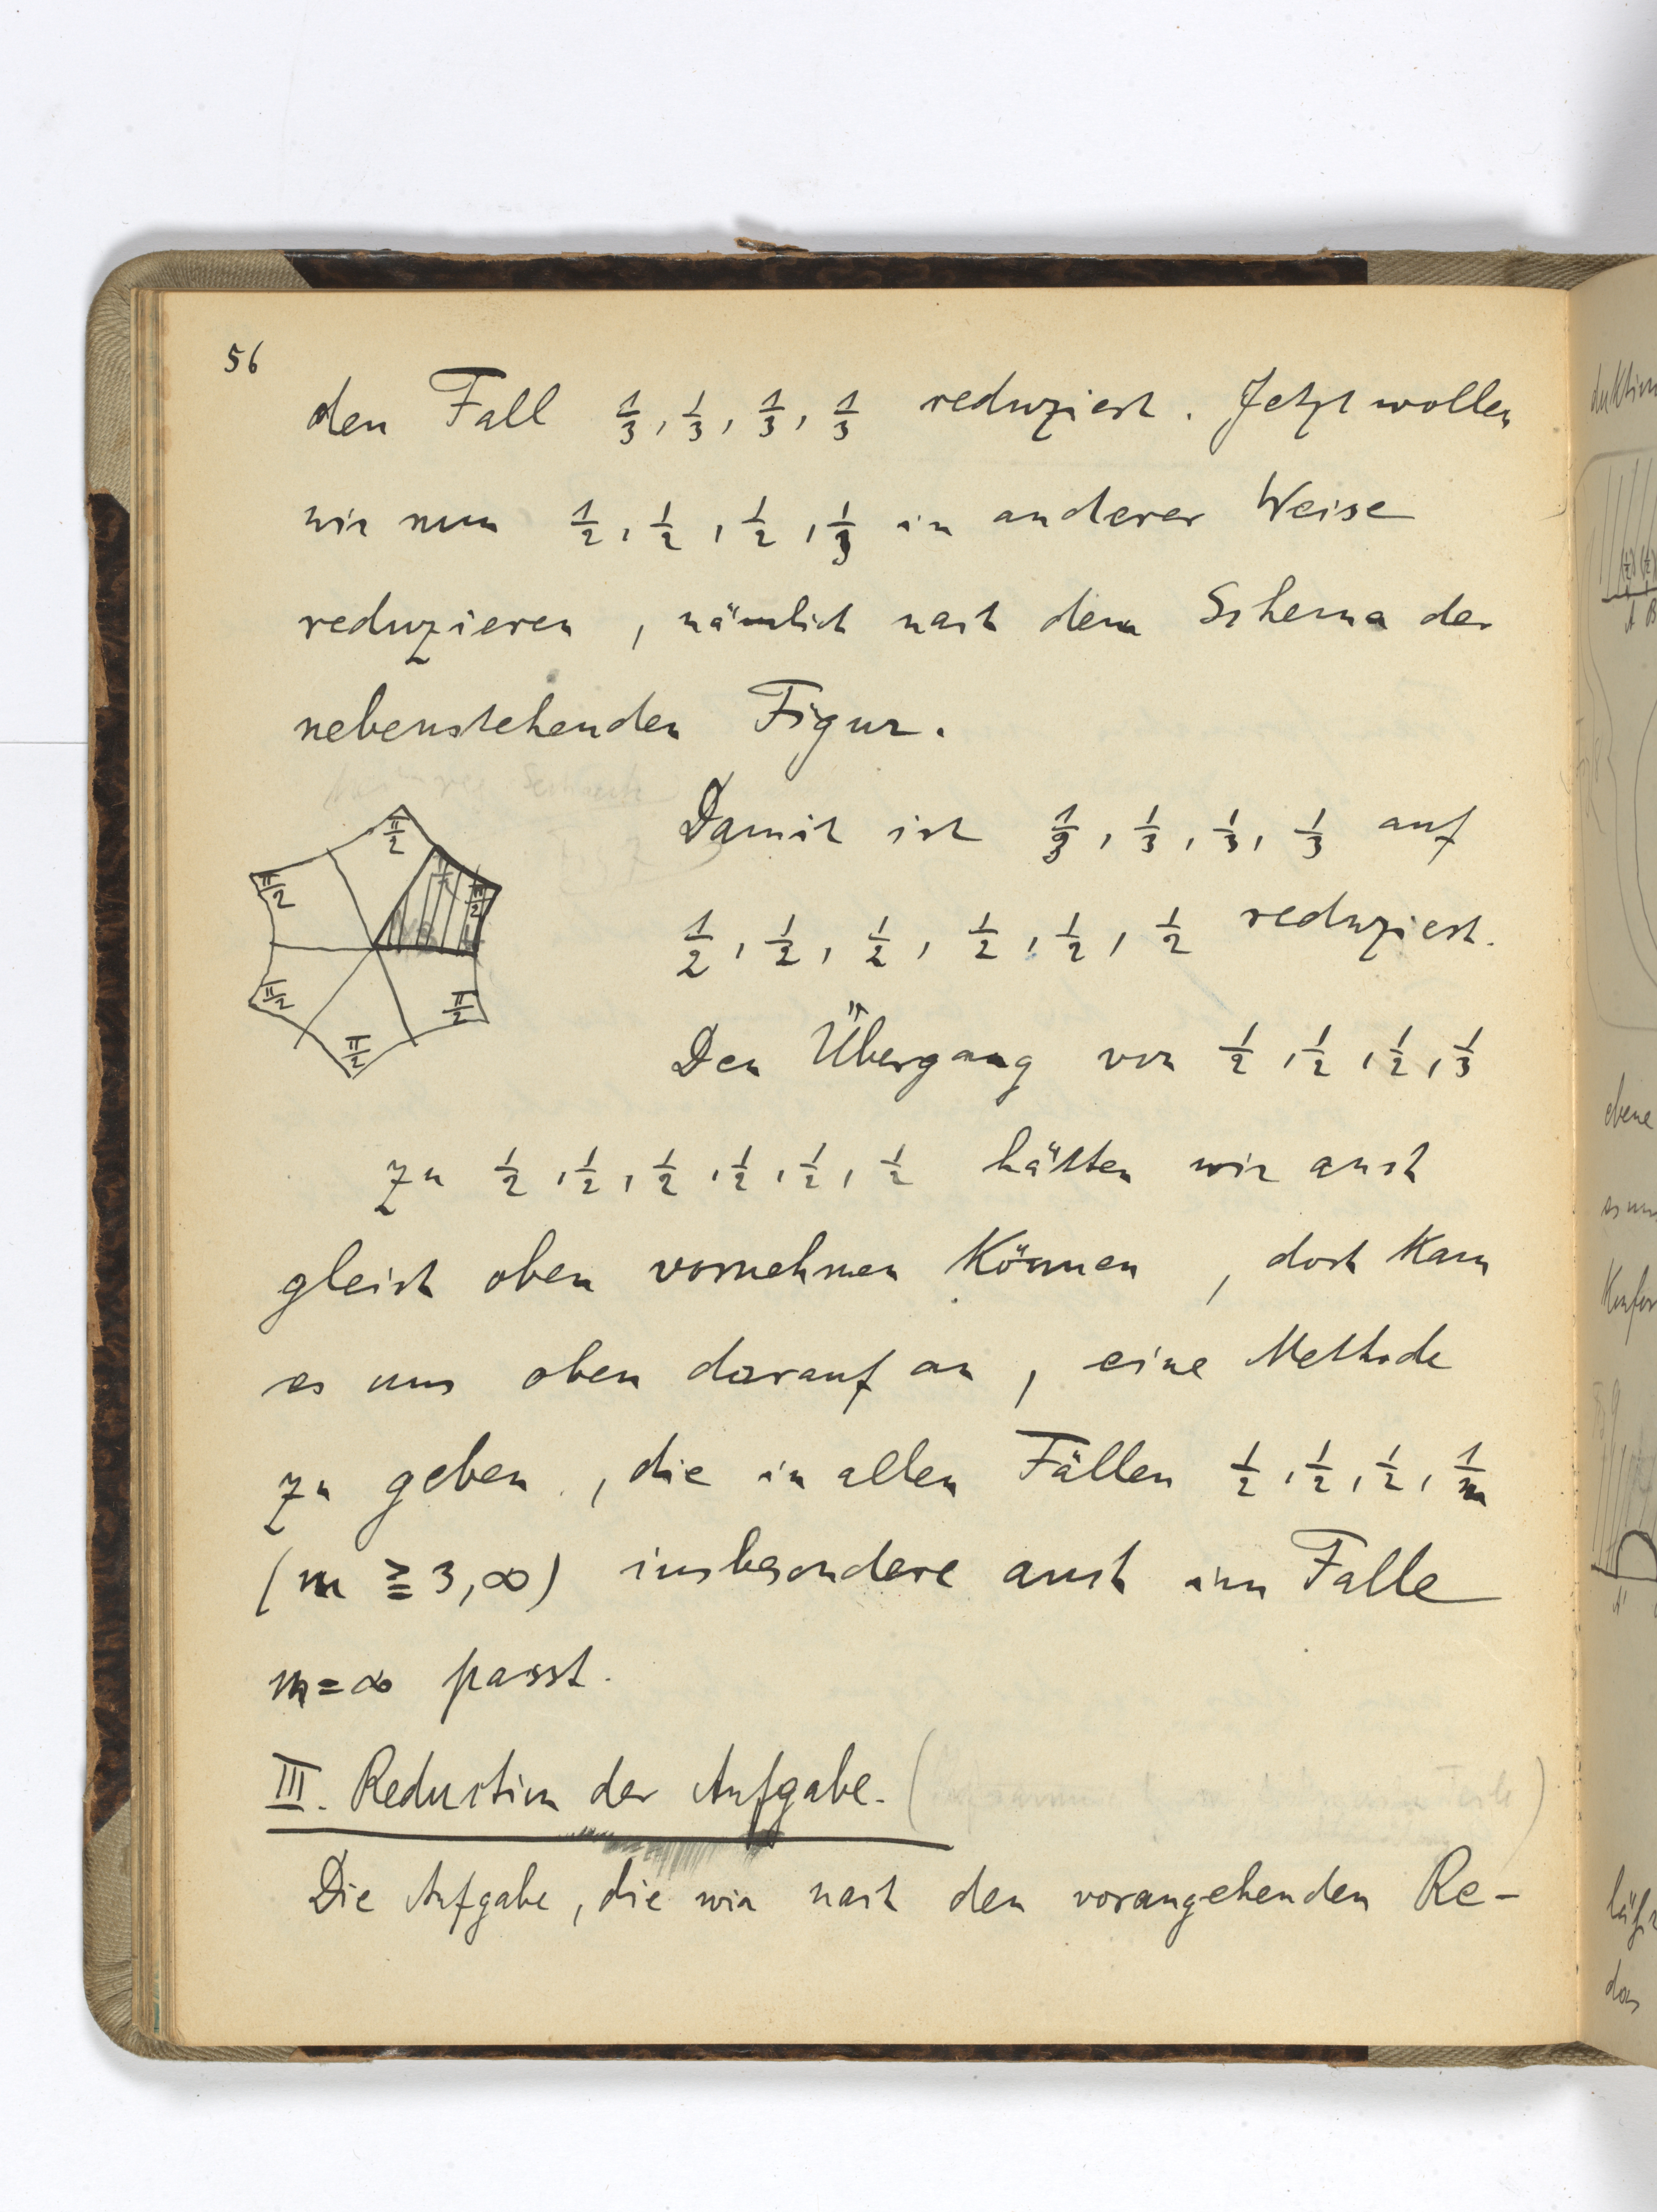 56
den Fall 1/3, 1/3, 1/3, 1/3 reduziert. Jetzt wollen
wir nun 1/2, 1/2, 1/2, 1/3 in anderer Weise
reduzieren, nämlich nach dem Schema der
nebenstehenden Figur.
π/2
π/2
π/2
π/2
π/2
π/2
Damit ist 1/3, 1/3, 1/3, 1/3 auf
1/2, 1/2, 1/2, 1/2, 1/2, 1/2 reduziert.
Den Übergang von 1/2, 1/2, 1/2, 1/3
zu 1/2, 1/2, 1/2, 1/2, 1/2, 1/2 hätten wir auch
gleich oben vornehmen können, doch kam
es uns oben darauf an, eine Methode
zu geben, die in allen Fällen 1/2, 1/2, 1/2, 1/m
(m ≧ 3, ∞) insbesondere auch im Falle
m = ∞ passt.
III. Reduction der Aufgabe.
Die Aufgabe, die wir nach den vorangehenden Re-
ebene
das